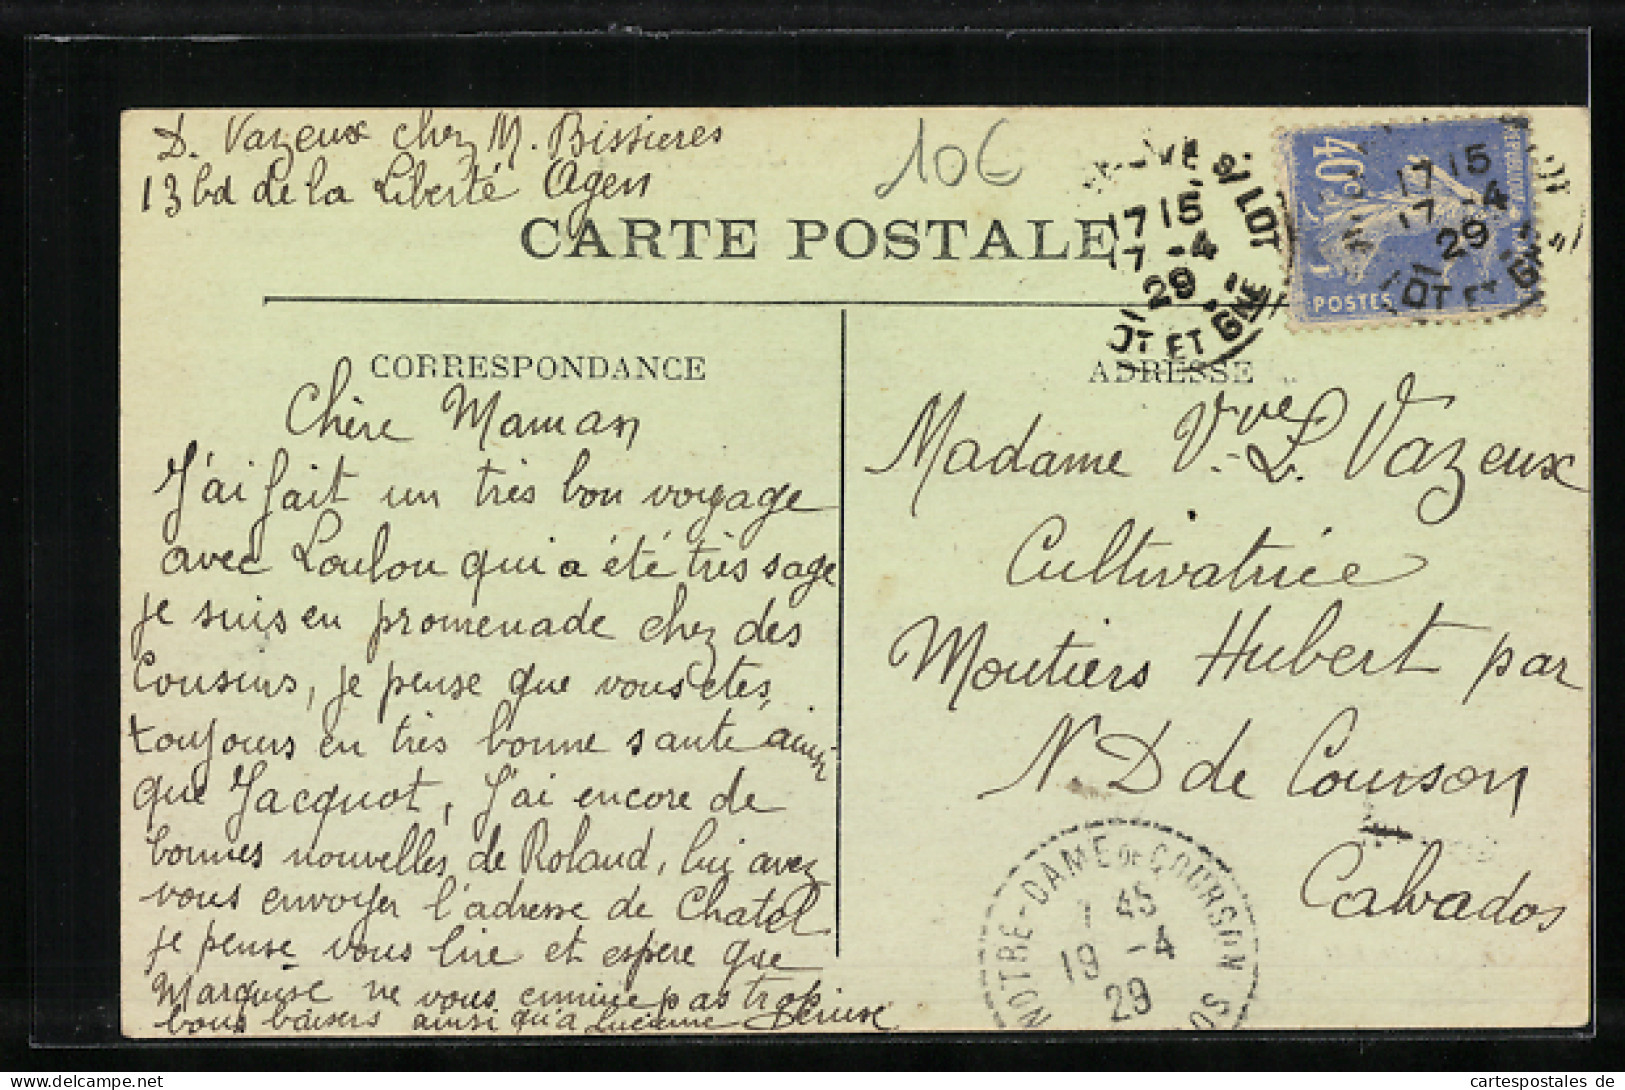 D. Vazeux chez M. Bissieres
13 bd de la Liberté Agen
10€
CARTE POSTALE
VE S/ LOT
17 15
17 -4
29
LOT ET GNE
40c
POSTES
17 15
17 -4
29
LOT ET GNE
CORRESPONDANCE
Chère Maman
J'ai fait un très bon voyage
avec Loulou qui a été très sage
je suis en promenade chez des
Cousins, je pense que vous etes,
toujours en très bonne santé ainsi
que Jacquot, J'ai encore de
bonnes nouvelles de Roland, lui avez
vous envoyer l'adresse de Chatel
je pense vous lire et espere que
Marquise ne vous ennuie pas trop
bons baisers ainsi qu'a Lucienne Denise
ADRESSE
Madame Vve L. Vazeux
Cultivatrice
Moutiers Hubert par
N D de Courson
Calvados
NOTRE-DAME DE COURSON
7 45
19 -4
29
cartespostales de
cartespostales.de